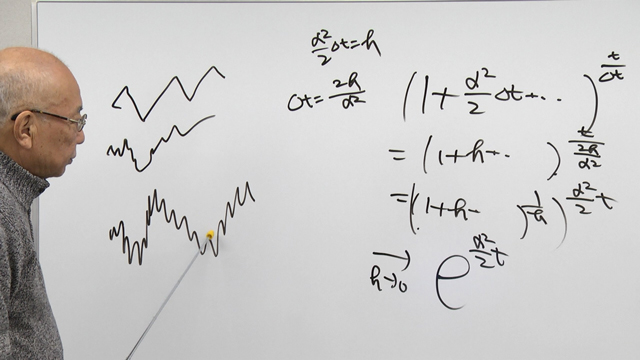 α²/2 Δt = h
Δt = 2h/α²
(1 + α²/2 Δt + ‥)^(t/Δt)
= (1 + h ‥)^(t/(2h/α²))
= ((1 + h ‥)^(1/h))^(α²/2 t)
→ h→0 e^(α²/2 t)